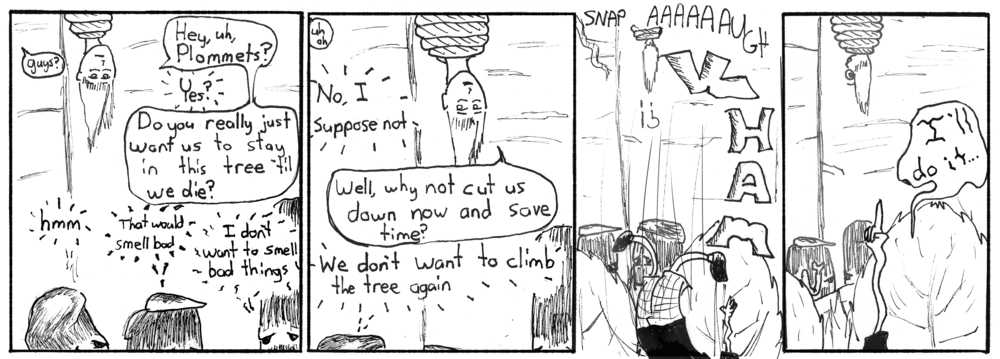 guys?
Hey, uh,
Plommets?
Yes?
Do you really just
want us to stay
in this tree 'til
we die?
hmm
That would
smell bad
I don't
want to smell
bad things
uh
oh
No, I
suppose not
Well, why not cut us
down now and save
time?
We don't want to climb
the tree again
SNAP
AAAAAAUGH
WHAM
I'll
do it...